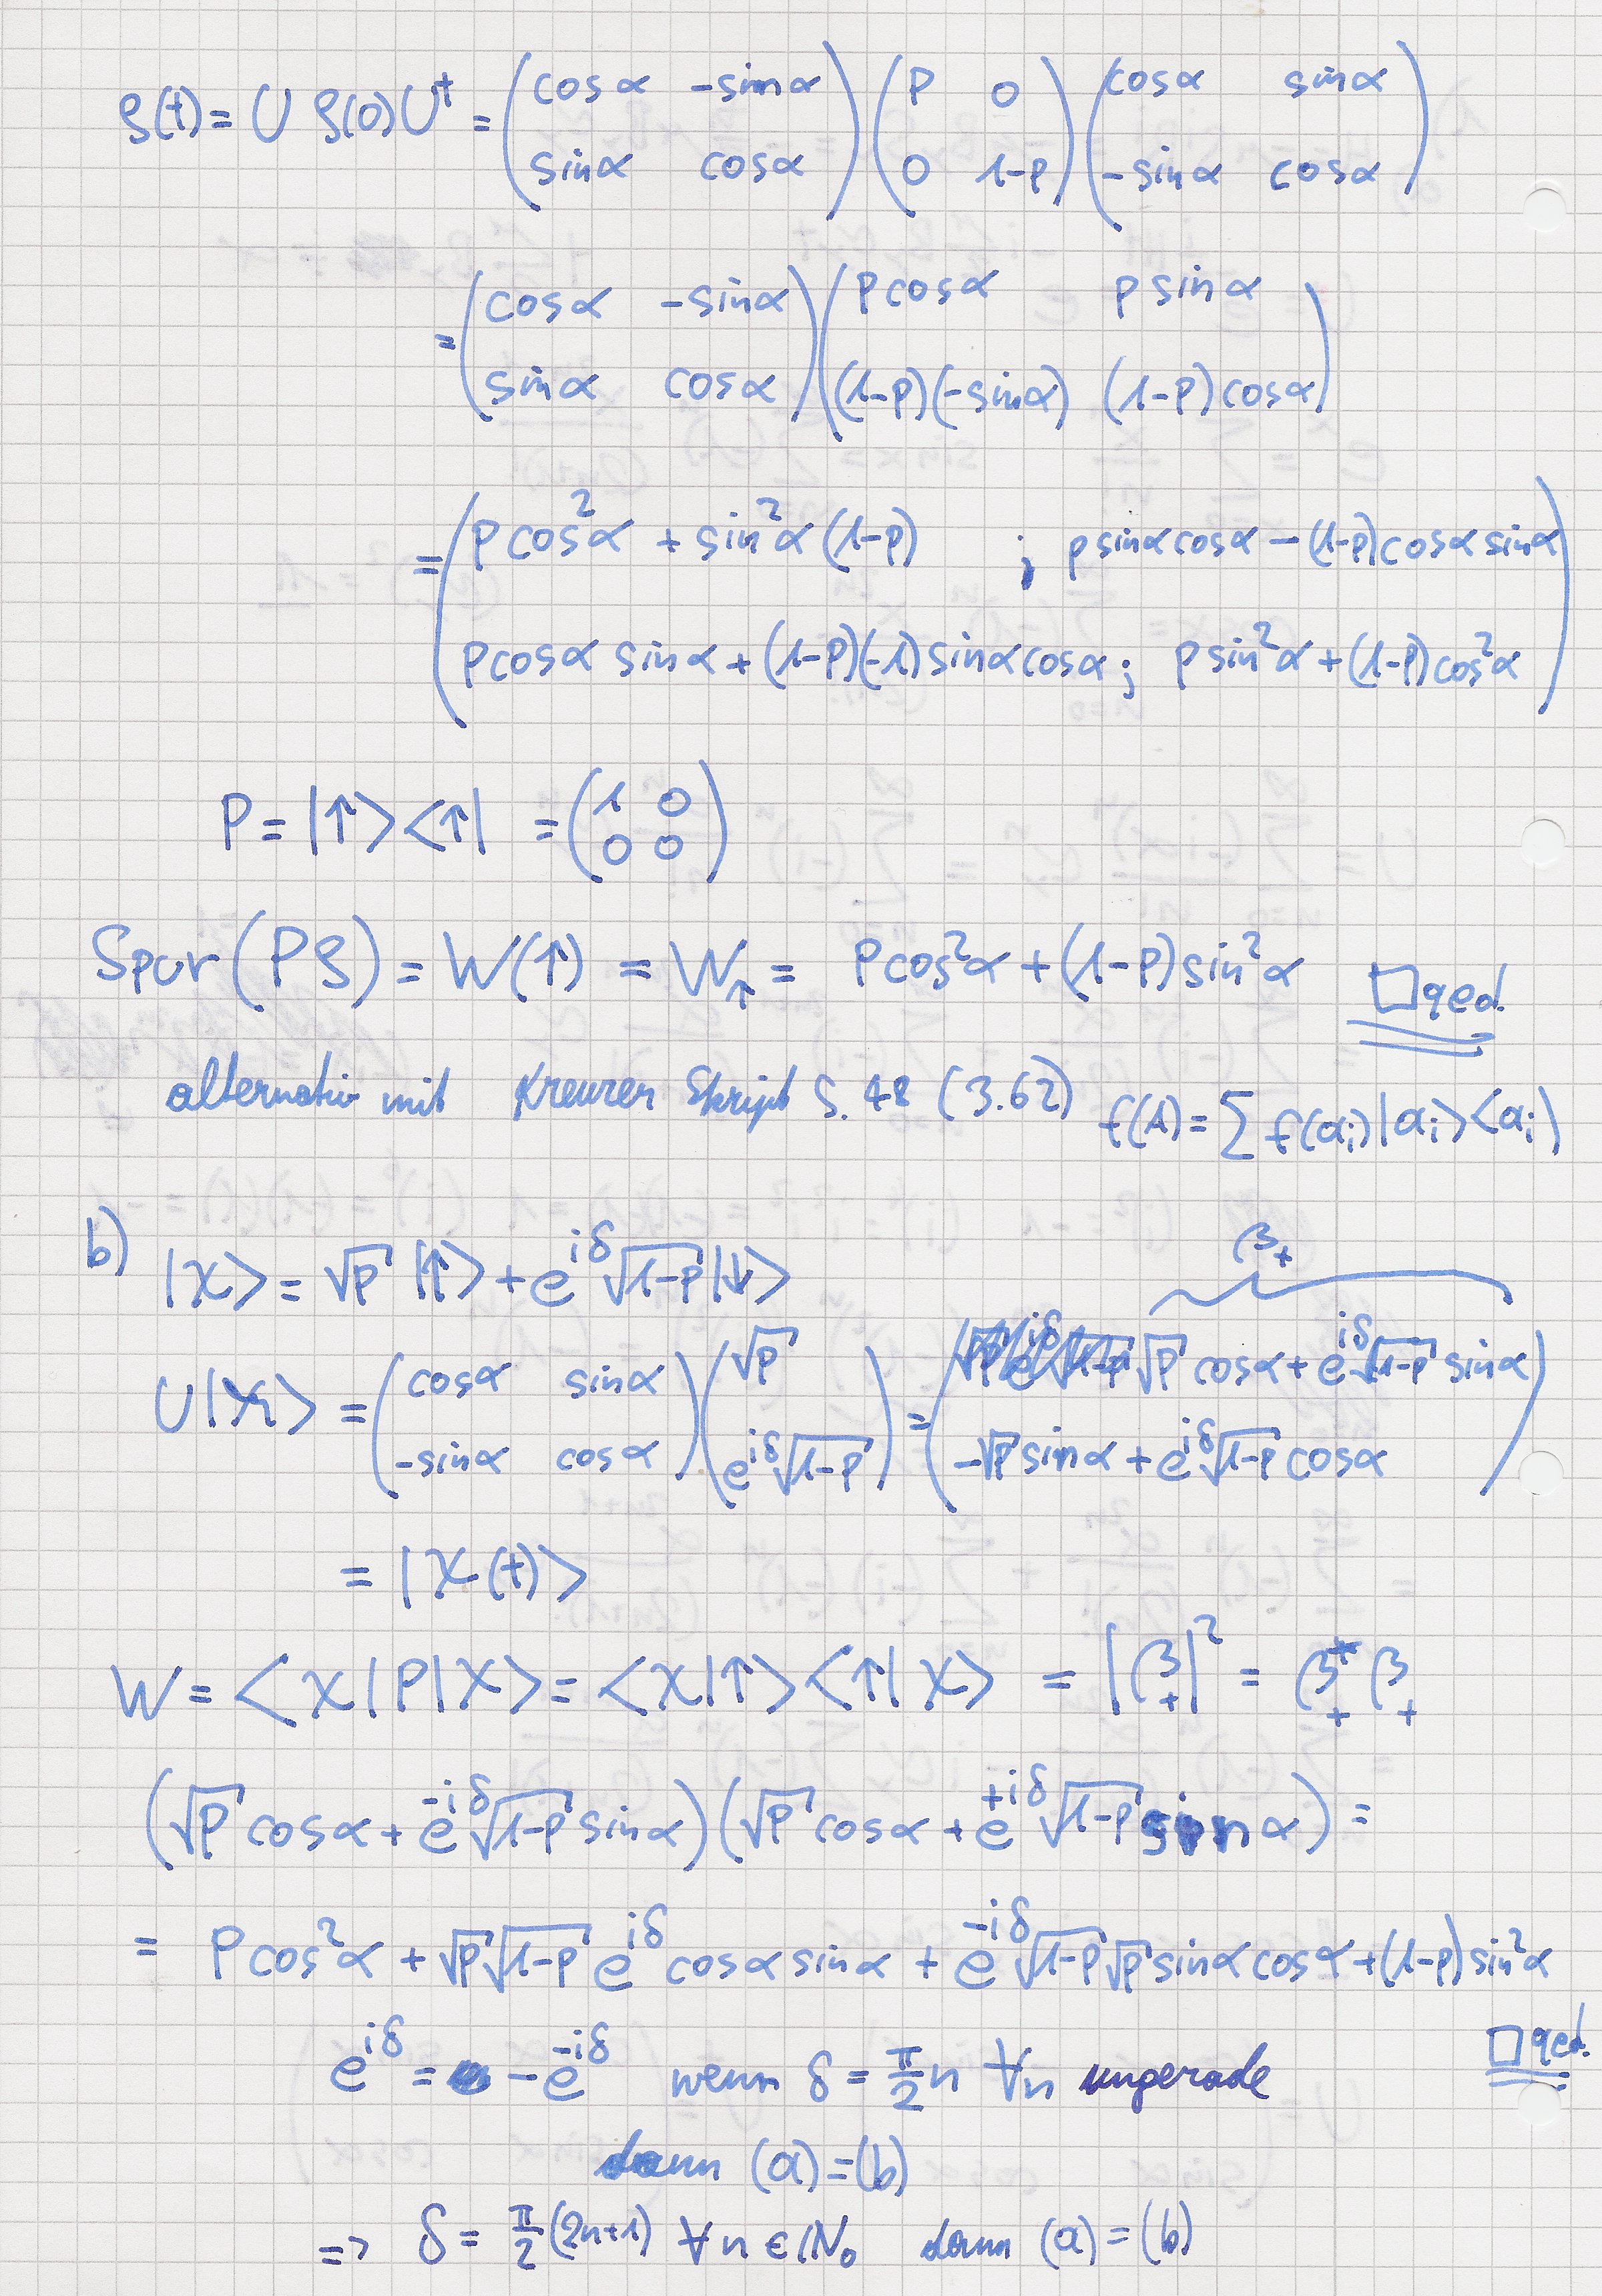 ρ(t) = U ρ(0) U† = ( cosα -sinα ; sinα cosα ) ( p 0 ; 0 1-p ) ( cosα sinα ; -sinα cosα )
= ( cosα -sinα ; sinα cosα ) ( p cosα p sinα ; (1-p)(-sinα) (1-p) cosα )
= ( p cos²α + sin²α (1-p) ; p sinα cosα - (1-p) cosα sinα
p cosα sinα + (1-p)(-1) sinα cosα ; p sin²α + (1-p) cos²α )
P = |↑><↑| = ( 1 0 ; 0 0 )
Spur (Pρ) = W(↑) = W↑ = p cos²α + (1-p) sin²α □ qed.
alternativ mit Kreuzer Skript S. 48 (3.62) f(A) = ∑ f(ai) |ai> <ai|
b) |χ> = √p |↑> + e^{iδ} √(1-p) |↓>
β₊
U|χ> = ( cosα sinα ; -sinα cosα ) ( √p ; e^{iδ} √(1-p) ) = ( √p cosα + e^{iδ} √(1-p) sinα ; -√p sinα + e^{iδ} √(1-p) cosα )
= |χ(t)>
W = <χ|P|χ> = <χ|↑><↑|χ> = |β₊|² = β₊* β₊
(√p cosα + e^{-iδ} √(1-p) sinα) (√p cosα + e^{+iδ} √(1-p) sinα) =
= p cos²α + √p √(1-p) e^{iδ} cosα sinα + e^{-iδ} √(1-p) √p sinα cosα + (1-p) sin²α
e^{iδ} = -e^{-iδ} wenn δ = π/2 n ∀n ungerade □ qed.
dann (a) = (b)
=> δ = π/2 (2n+1) ∀ n ∈ ℕ₀ dann (a) = (b)